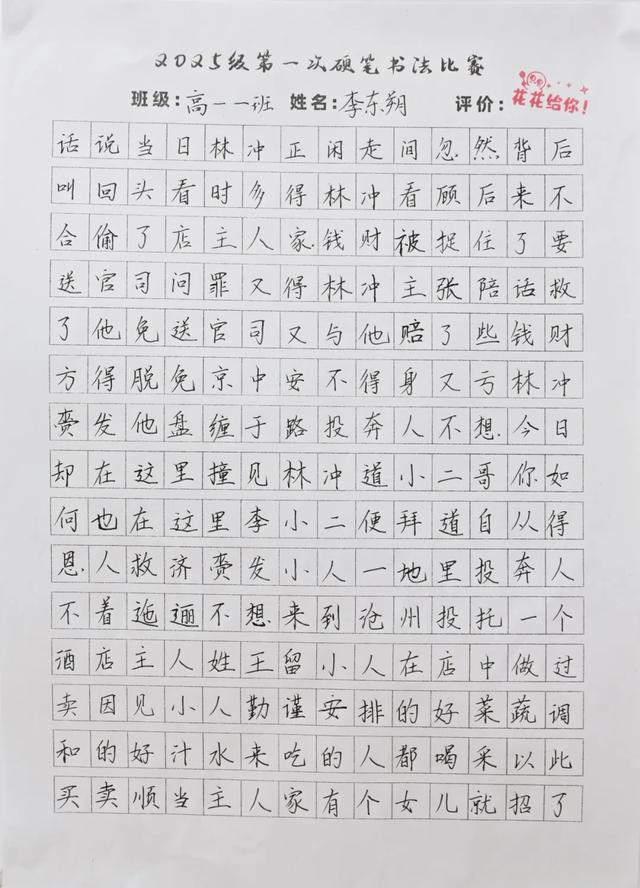 2025级第一次硬笔书法比赛
班级：高一一班 姓名：李东朔 评价：花花给你！
话说当日林冲正闲走间忽然背后
叫回头看时多得林冲看顾后来不
合偷了店主人家钱财被捉住了要
送官司问罪又得林冲主张陪话救
了他免送官司又与他赔了些钱财
方得脱免京中安不得身又亏林冲
赍发他盘缠于路投奔人不想今日
却在这里撞见林冲道小二哥你如
何也在这里李小二便拜道自从得
恩人救济赍发小人一地里投奔人
不着迤逦不想来到沧州投托一个
酒店主人姓王留小人在店中做过
卖因见小人勤谨安排的好菜蔬调
和的好汁水来吃的人都喝采以此
买卖顺当主人家有个女儿就招了